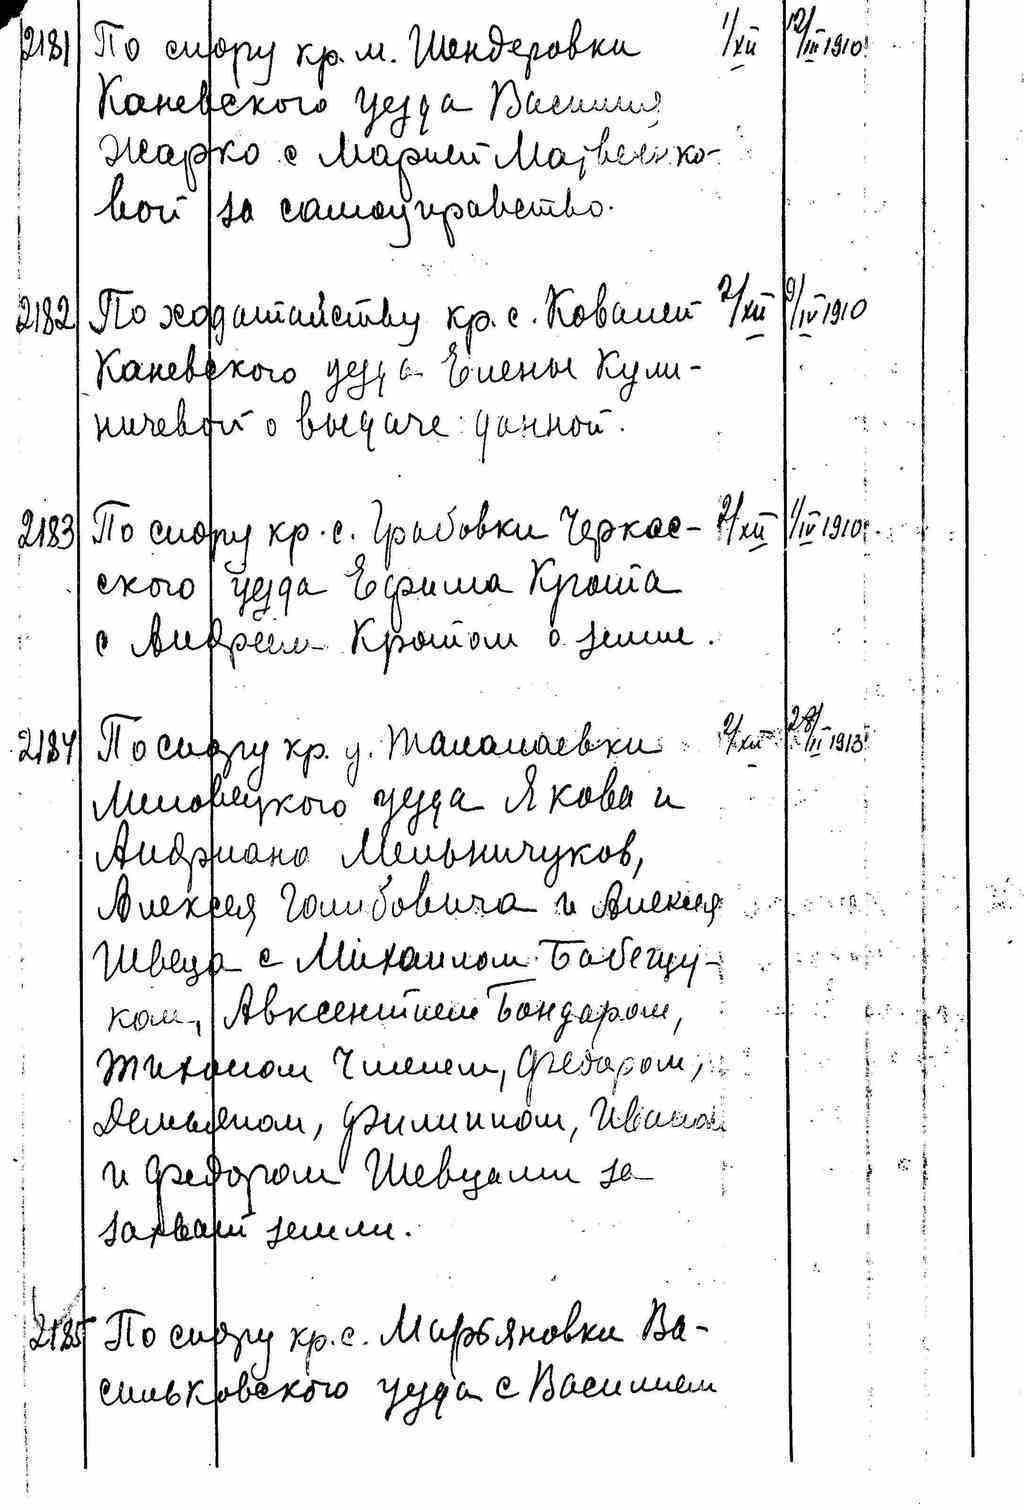 2181 По спору кр. м. Шендеровки 1/XII 12/III 1910
Каневского уезда Василия
Жарко с Марией Матвеенко-
вой за самоуправство.
2182 По ходатайству кр. с. Ковалей 2/XII 9/IV 1910
Каневского уезда Елены Кули-
ничевой о выдаче данной.
2183 По спору кр. с. Грабовки Черкас- 2/XII 1/IV 1910
ского уезда Ефима Крота
с Андреем Кротом о земле.
2184 По спору кр. д. Талалаевки 2/XII 28/II 1913
Липовецкого уезда Якова и
Андриана Мельничуков,
Алексея Голибовича и Алексея
Швеца с Михаилом Бабещу-
ком, Авксентием Бондаром,
Тихоном Членем, Федором,
Демьяном, Филиппом, Иваном
и Федором Шевцами за
захват земли.
2185 По спору кр. с. Марьяновки Ва-
сильковского уезда с Василием